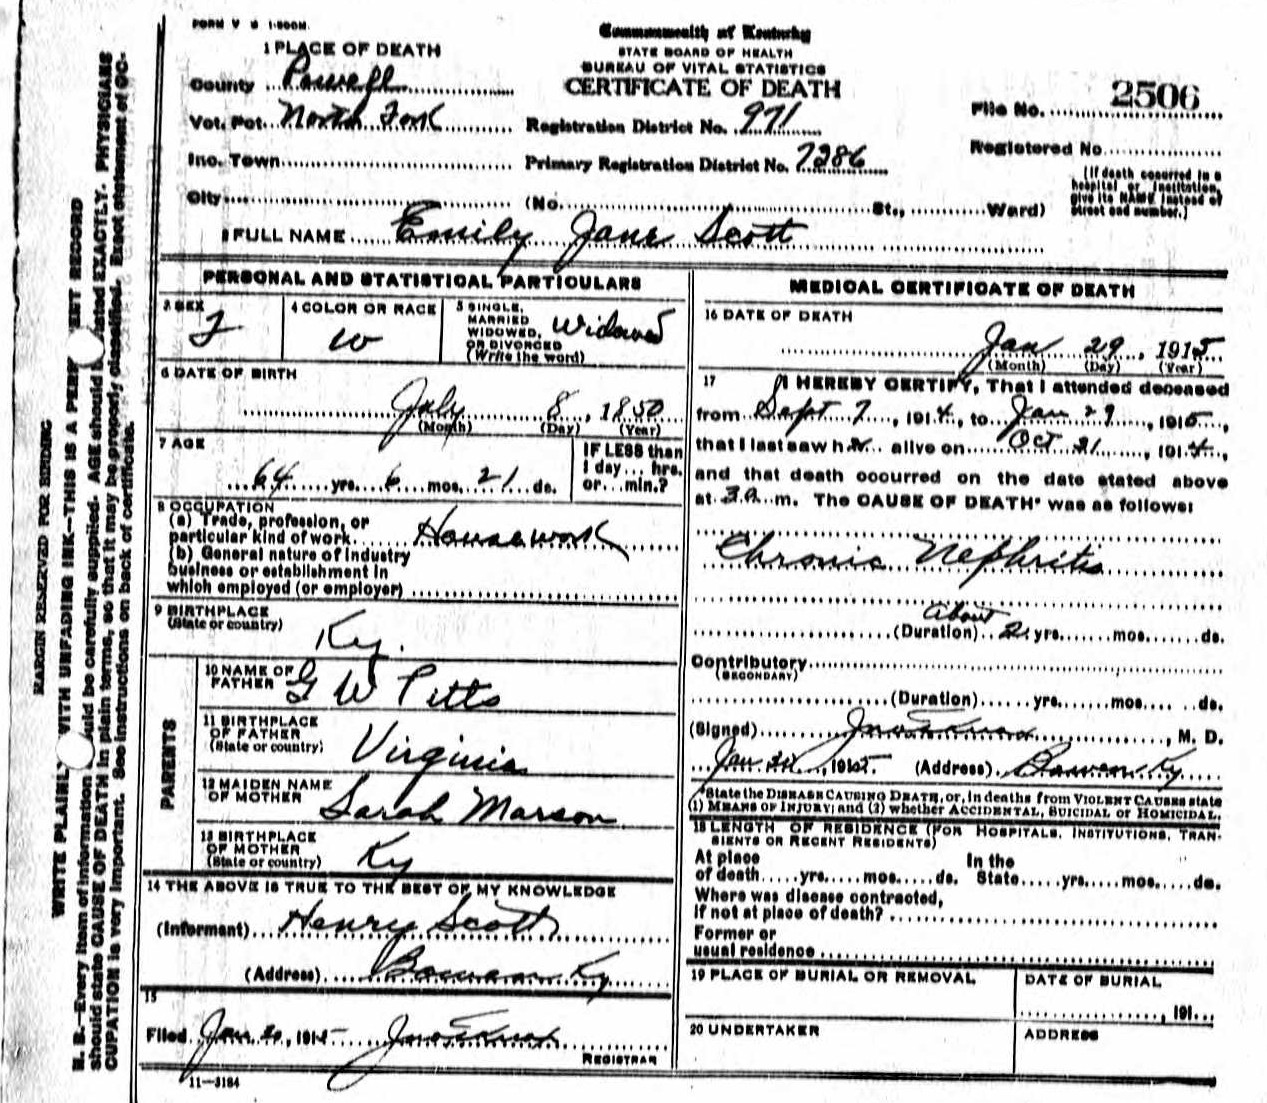 FORM V S 1-500M.
Commonwealth of Kentucky
STATE BOARD OF HEALTH
BUREAU OF VITAL STATISTICS
CERTIFICATE OF DEATH
1 PLACE OF DEATH
County Powell
Vot. Pct. North Fork
Inc. Town
City
Registration District No. 971
Primary Registration District No. 7286
(No. St., Ward)
File No. 2506
Registered No.
(If death occurred in a
hospital or institution,
give its NAME instead of
street and number.)
2 FULL NAME Emily Jane Scott
PERSONAL AND STATISTICAL PARTICULARS
3 SEX
F
4 COLOR OR RACE
W
5 SINGLE,
MARRIED
WIDOWED,
OR DIVORCED
(Write the word)
Widowed
6 DATE OF BIRTH
July 8, 1850
(Month) (Day) (Year)
7 AGE
64 yrs. 6 mos. 21 ds.
IF LESS than
1 day... hrs.
or... min.?
8 OCCUPATION
(a) Trade, profession, or
particular kind of work Housework
(b) General nature of industry
business or establishment in
which employed (or employer)
9 BIRTHPLACE
(State or country)
Ky.
PARENTS
10 NAME OF
FATHER
G W Pitts
11 BIRTHPLACE
OF FATHER
(State or country)
Virginia
12 MAIDEN NAME
OF MOTHER
Sarah Marson
13 BIRTHPLACE
OF MOTHER
(State or country)
Ky
14 THE ABOVE IS TRUE TO THE BEST OF MY KNOWLEDGE
(Informant) Henry Scott
(Address) Bowen Ky
15
Filed Jan 30, 1915
REGISTRAR
11-3184
MEDICAL CERTIFICATE OF DEATH
16 DATE OF DEATH
Jan 29, 1915
(Month) (Day) (Year)
17 I HEREBY CERTIFY, That I attended deceased
from Sept 7, 1914, to Jan 29, 1915,
that I last saw her alive on Oct 21, 1914,
and that death occurred on the date stated above
at 3 a. m. The CAUSE OF DEATH* was as follows:
Chronic Nephritis
About
(Duration) 2 yrs. mos. ds.
Contributory
(SECONDARY)
(Duration) yrs. mos. ds.
(Signed) , M. D.
Jan 30, 1915. (Address) Bowen Ky
*State the DISEASE CAUSING DEATH, or, in deaths from VIOLENT CAUSES state
(1) MEANS OF INJURY; and (2) whether ACCIDENTAL, SUICIDAL or HOMICIDAL.
18 LENGTH OF RESIDENCE (FOR HOSPITALS, INSTITUTIONS, TRAN-
SIENTS OR RECENT RESIDENTS)
At place
of death yrs. mos. ds.
In the
State yrs. mos. ds.
Where was disease contracted,
if not at place of death?
Former or
usual residence
19 PLACE OF BURIAL OR REMOVAL
DATE OF BURIAL
, 191
20 UNDERTAKER
ADDRESS
MARGIN RESERVED FOR BINDING
WRITE PLAINL WITH UNFADING INK—THIS IS A PERM RECORD
N. B.—Every item of information should be carefully supplied. AGE should stated EXACTLY. PHYSICIANS
should state CAUSE OF DEATH in plain terms, so that it may be properly classified. Exact statement of OC-
CUPATION is very important. See instructions on back of certificate.